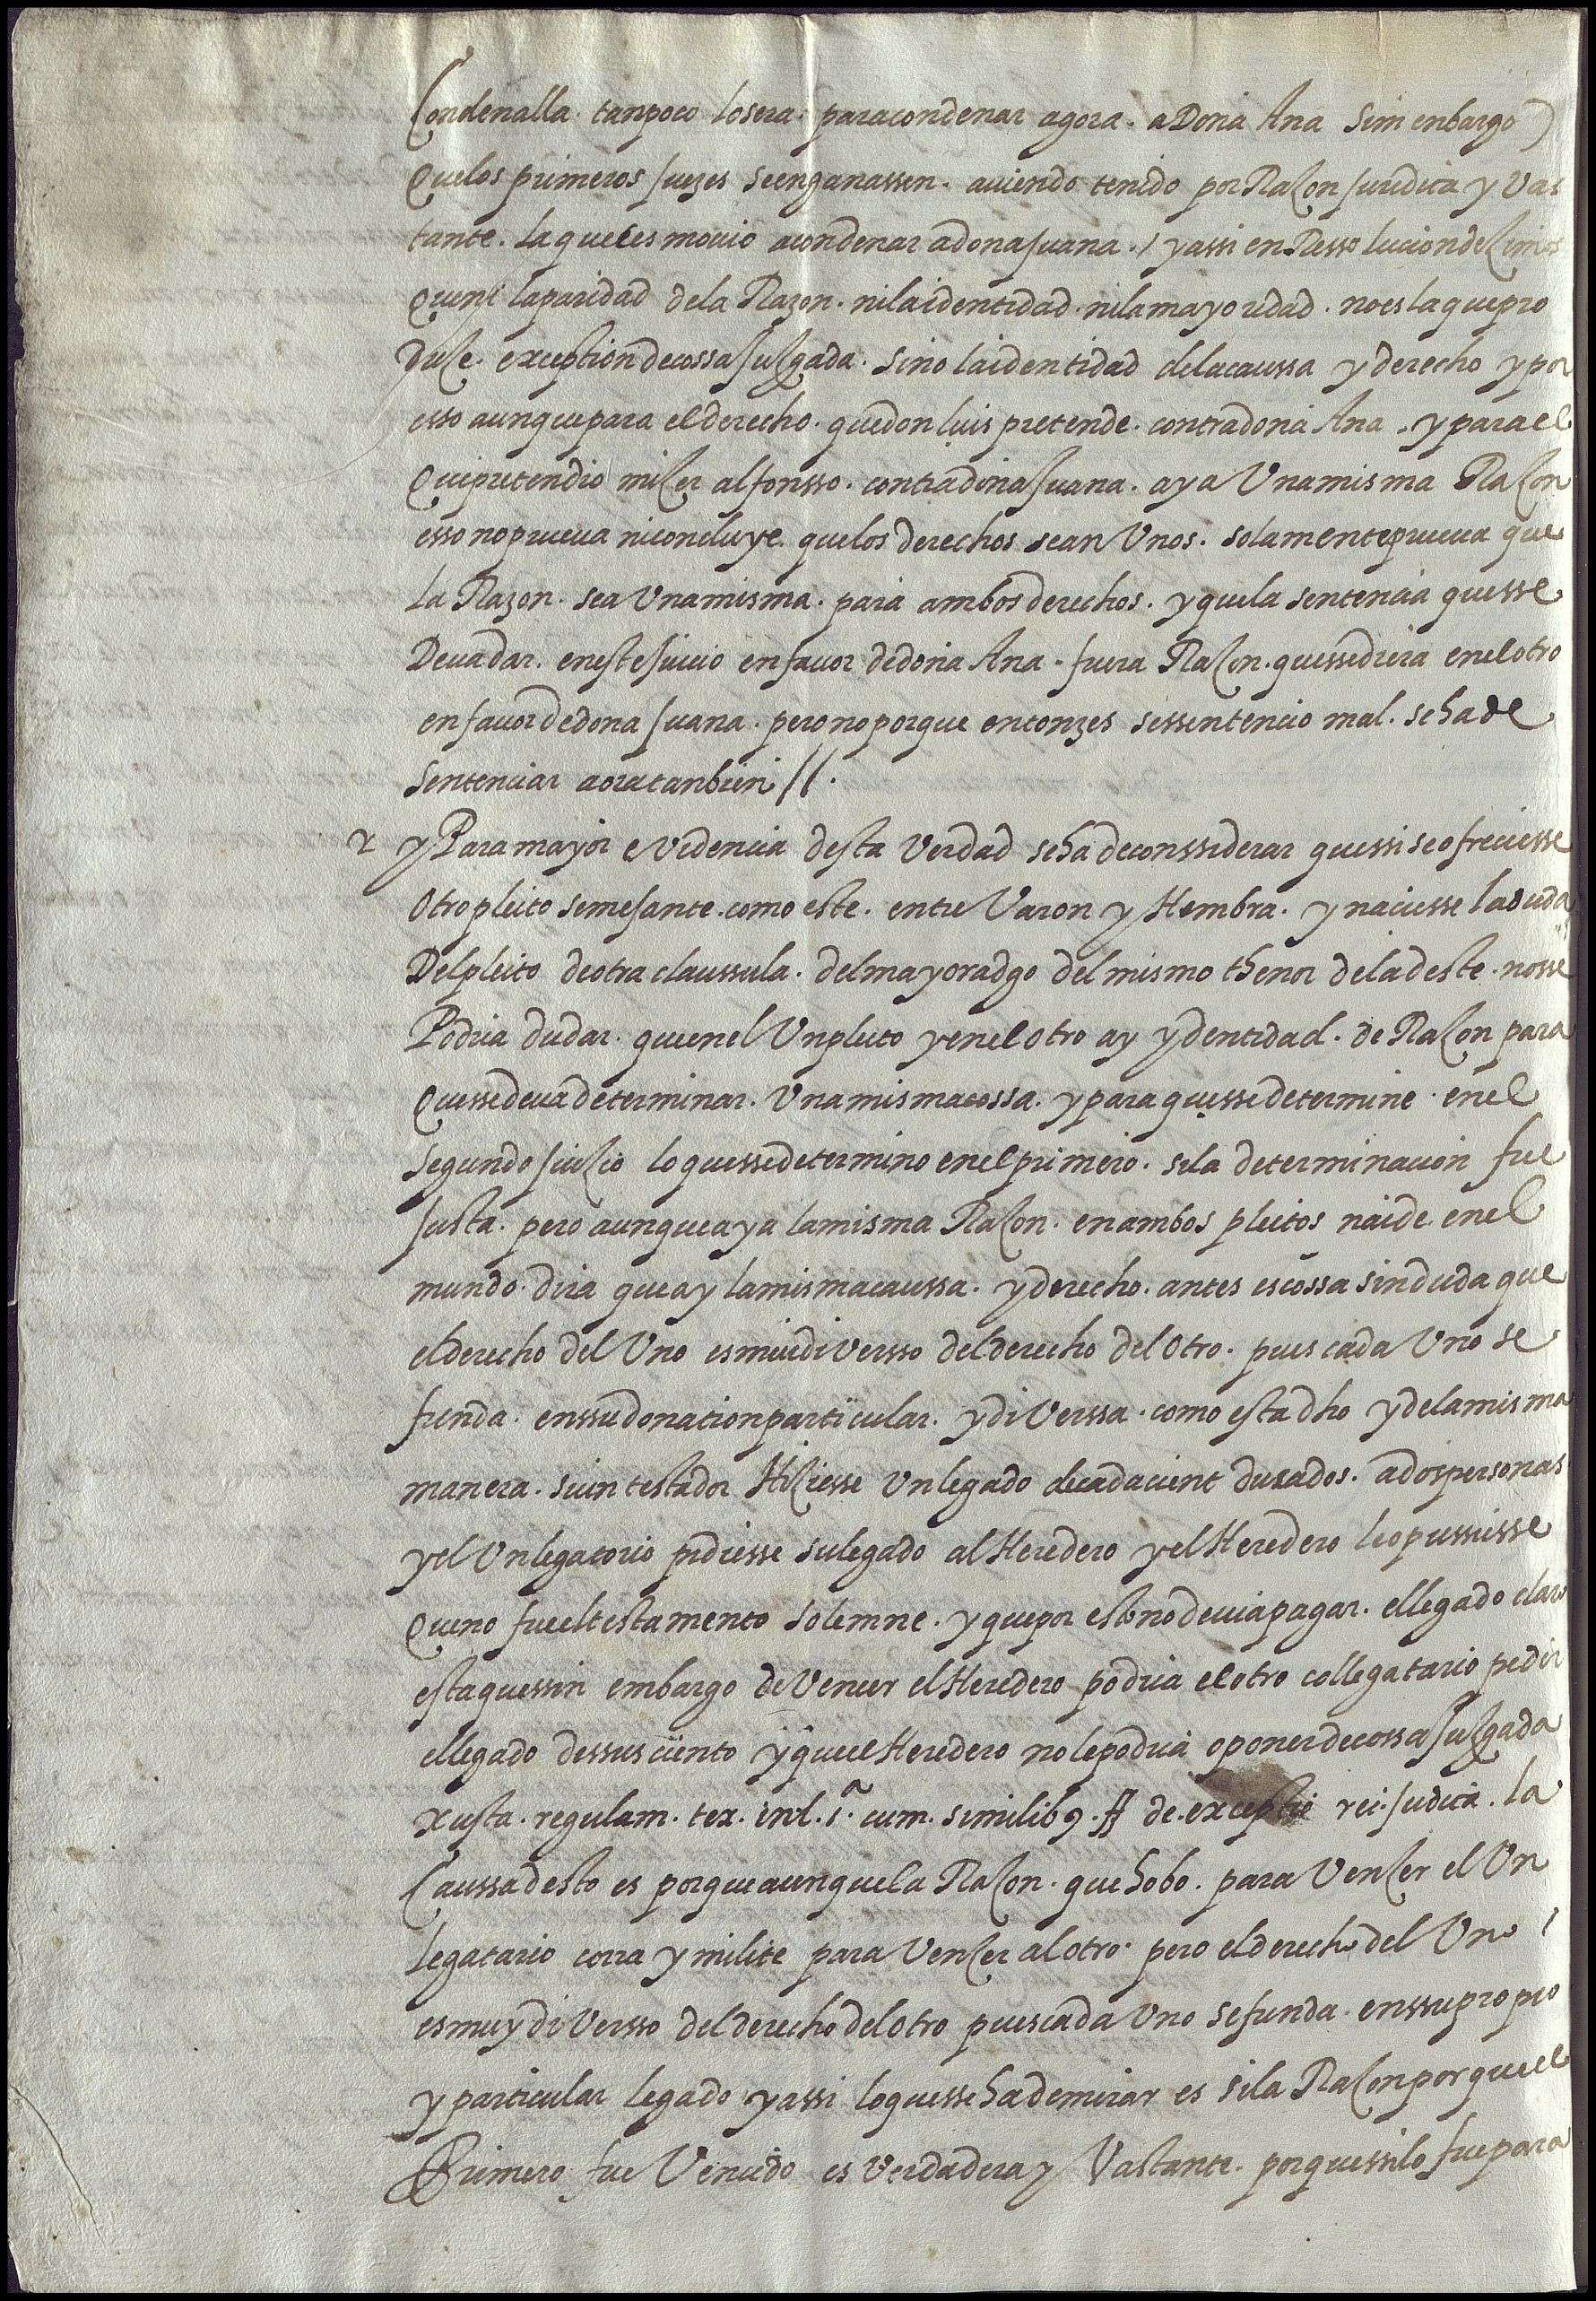 Condenalla. tanpoco losera. paracondenar agora. a Doña Ana Sim enbargo
Quelos primeros Juezes seenganassen. auiendo tenido por Raçon Juridica y Vas
tante. la queles mouio acondenar adona Juana./ yassi en Resso lucion deçimos
Queni laparidad dela Razon. nilaidentidad. nilamayoridad. noes laquepro
duçe. exception decossa Julgada. Sino laidentidad delacaussa yderecho ypor
esso aunquepara elderecho. quedon luis pretende. contradoña Ana. yparael
Quepretendio miçer alfonsso. contradona Juana. aya Vnamisma Raçon
esso noprueua niconcluye. quelos derechos sean Vnos. solamenteprueua que
la Razon. sea Vnamisma. para ambos derechos. yquela sentencia quesse
Deuadar. eneste Juicio enfauor dedoña Ana. fuera Raçon. quessediera enelotro
enfauordedona Juana. peronoporque entonzes sessentencio mal. sehade
sentenciar aoratanbien //.
2 y Paramayor eVidencia desta Verdad sehadeconssiderar quessi seofreciesse
Otropleito semeJante. como este. entre Varon y Hembra. ynaciesse laduda
Delpleito deotra claussula. delmayoradgo del mismo thenor deladeste. nosse
Podria dudar. queenel Vnpleito yenelotro ay ydentidad. de Raçon para
Quessedeuadeterminar. Vnamismacossa. yparaquessedetermine enel
segundo Juiçio loquessedetermino enelprimero. sila determinacion fue
Justa. pero aunqueaya lamisma Raçon. enambos pleitos naide enel
mundo. dira queay lamismacaussa. yderecho. antes escossa sinduda que
elderecho del Vno esmuidiVersso delderecho delotro. pues cada Vno se
funda. enssudonacionparticular. ydiVerssa. como estadho ydelamisma
manera. siun testador Hiçiesse Vnlegado decadacient ducados. adospersonas
yel Vnlegatorio pidiesse sulegado al Heredero yel Heredero leopussiesse
Queno fueeltestamento solemne. yquepor estonodeuiapagar. ellegado claro
estaquessin embargo deVencer el Heredero podria elotro collegatario pedir
ellegado dessusciento yqueel Heredero nolepodria oponerdecossa Julgada
xusta. regulam. tex. inl. 1ª. cum. similibꝰ. ff de. exceptie rei. Judica. la
Caussadesto es porqueaunquela Raçon. que hobo. para Vençer el Vn
legatario corra ymilite para Vençer alotro. pero elderecho del Vno
esmuydiVersso delderecho delotro puescada Vno sefunda. enssupropio
yparticular legado yassi loquesse hademirar es sila Raçonporqueel
Primero fue Vencido es Verdadera y Vastante. porquessilo fuepara